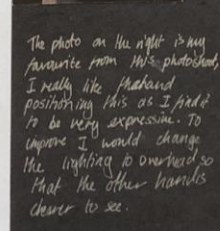 The photo on the right is my
favourite from this photoshoot,
I really like
positioning this as I find it
to be very expressive. To
improve I would change
the lighting to overhead so
that the other hand is
clearer to see.